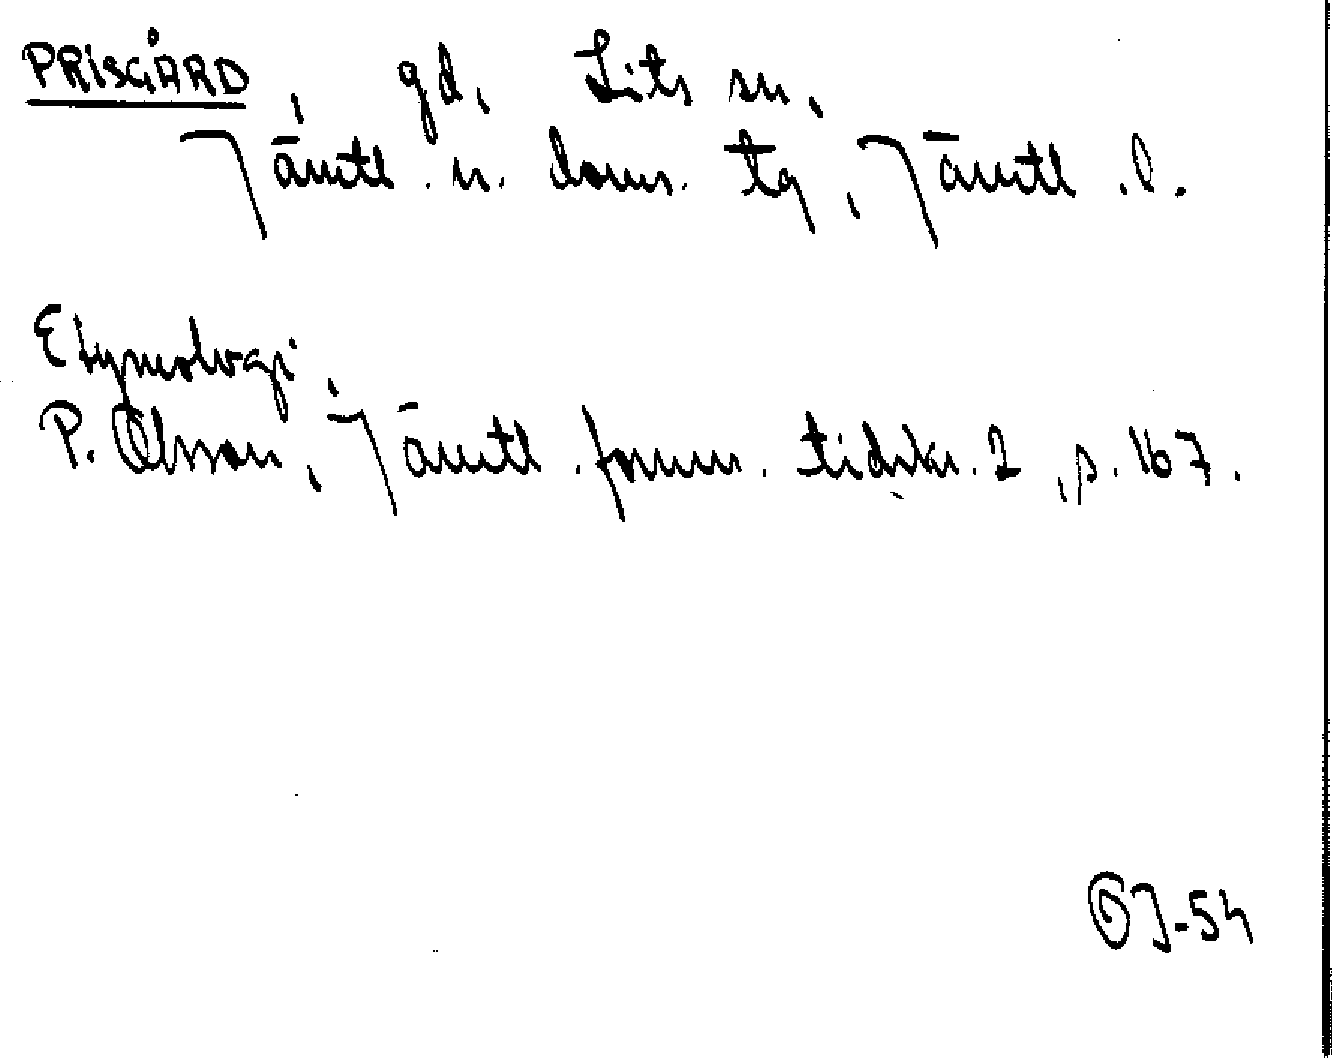 PRISGÅRD, gd, Lits sn,
Jämtl. n. doms. tg, Jämtl. l.
Etymologi,
P. Olsson, i Jämtl. fornm. tidskr. 2, s. 167.
OJ-54